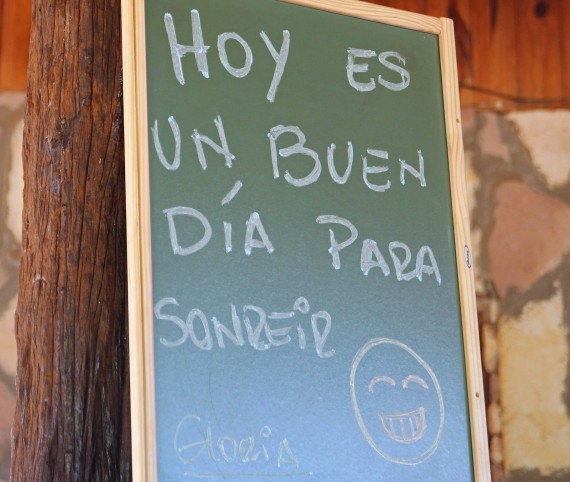 HOY ES
UN BUEN
DÍA PARA
SONREIR
GLORIA